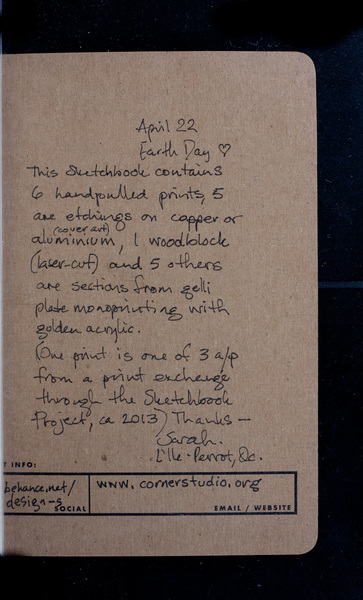 April 22
Earth Day ♡
This Sketchbook contains
6 handpulled prints, 5
are etchings on copper or
(cover art)
aluminium, 1 woodblock
(laser-cut) and 5 others
are sections from gelli
plate monoprinting with
golden acrylic.
(One print is one of 3 a/p
from a print exchange
through the Sketchbook
Project, ca 2013) Thanks —
Sarah.
L'Ile-Perrot, Qc.
T INFO:
behance.net/
design-s
SOCIAL
www.cornerstudio.org
EMAIL / WEBSITE